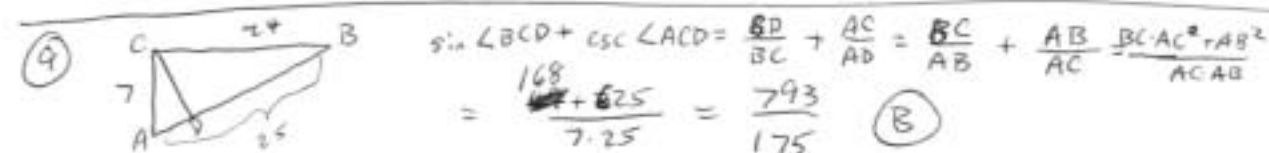 9 C 24 B sin ∠BCD + csc ∠ACD = BD/BC + AC/AD = BC/AB + AB/AC = BC·AC+AB²/AC·AB
7 168
A 25 = + 625/7·25 = 793/175 B